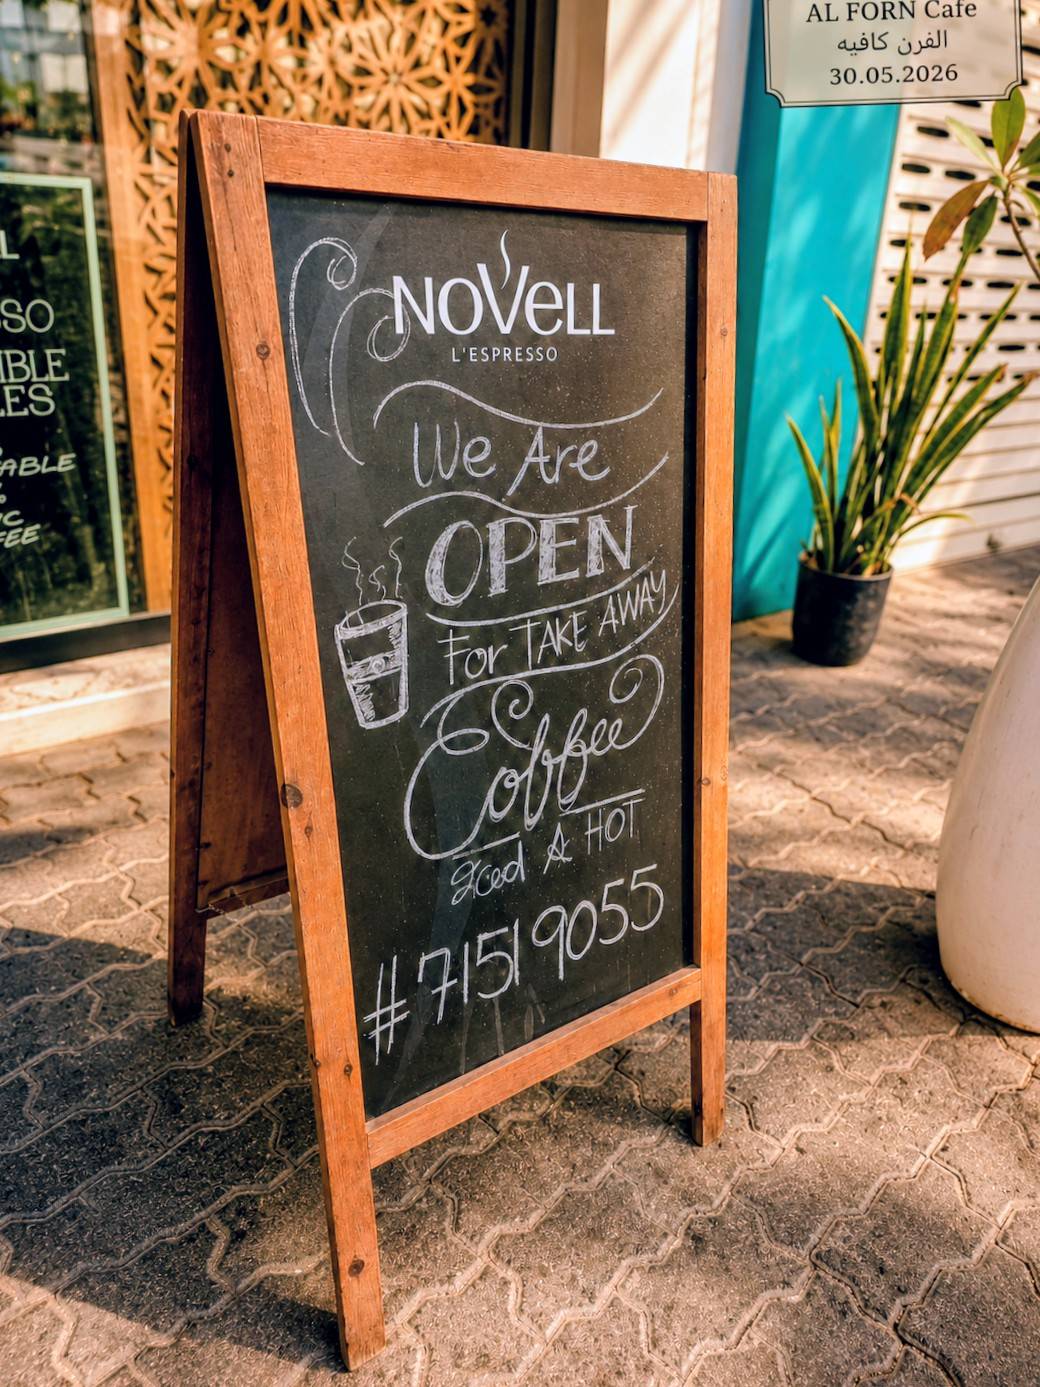 AL FORN Cafe
الفرن كافيه
30.05.2026
NOVELL
L'ESPRESSO
We Are
OPEN
For TAKE AWAY
Coffee
Iced & HOT
# 7151 9055